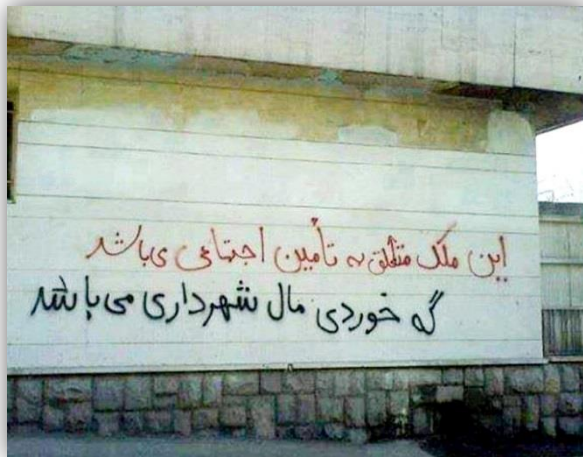 این ملک متعلق به تأمین اجتماعی می باشد
گه خوردی مال شهرداری می باشد